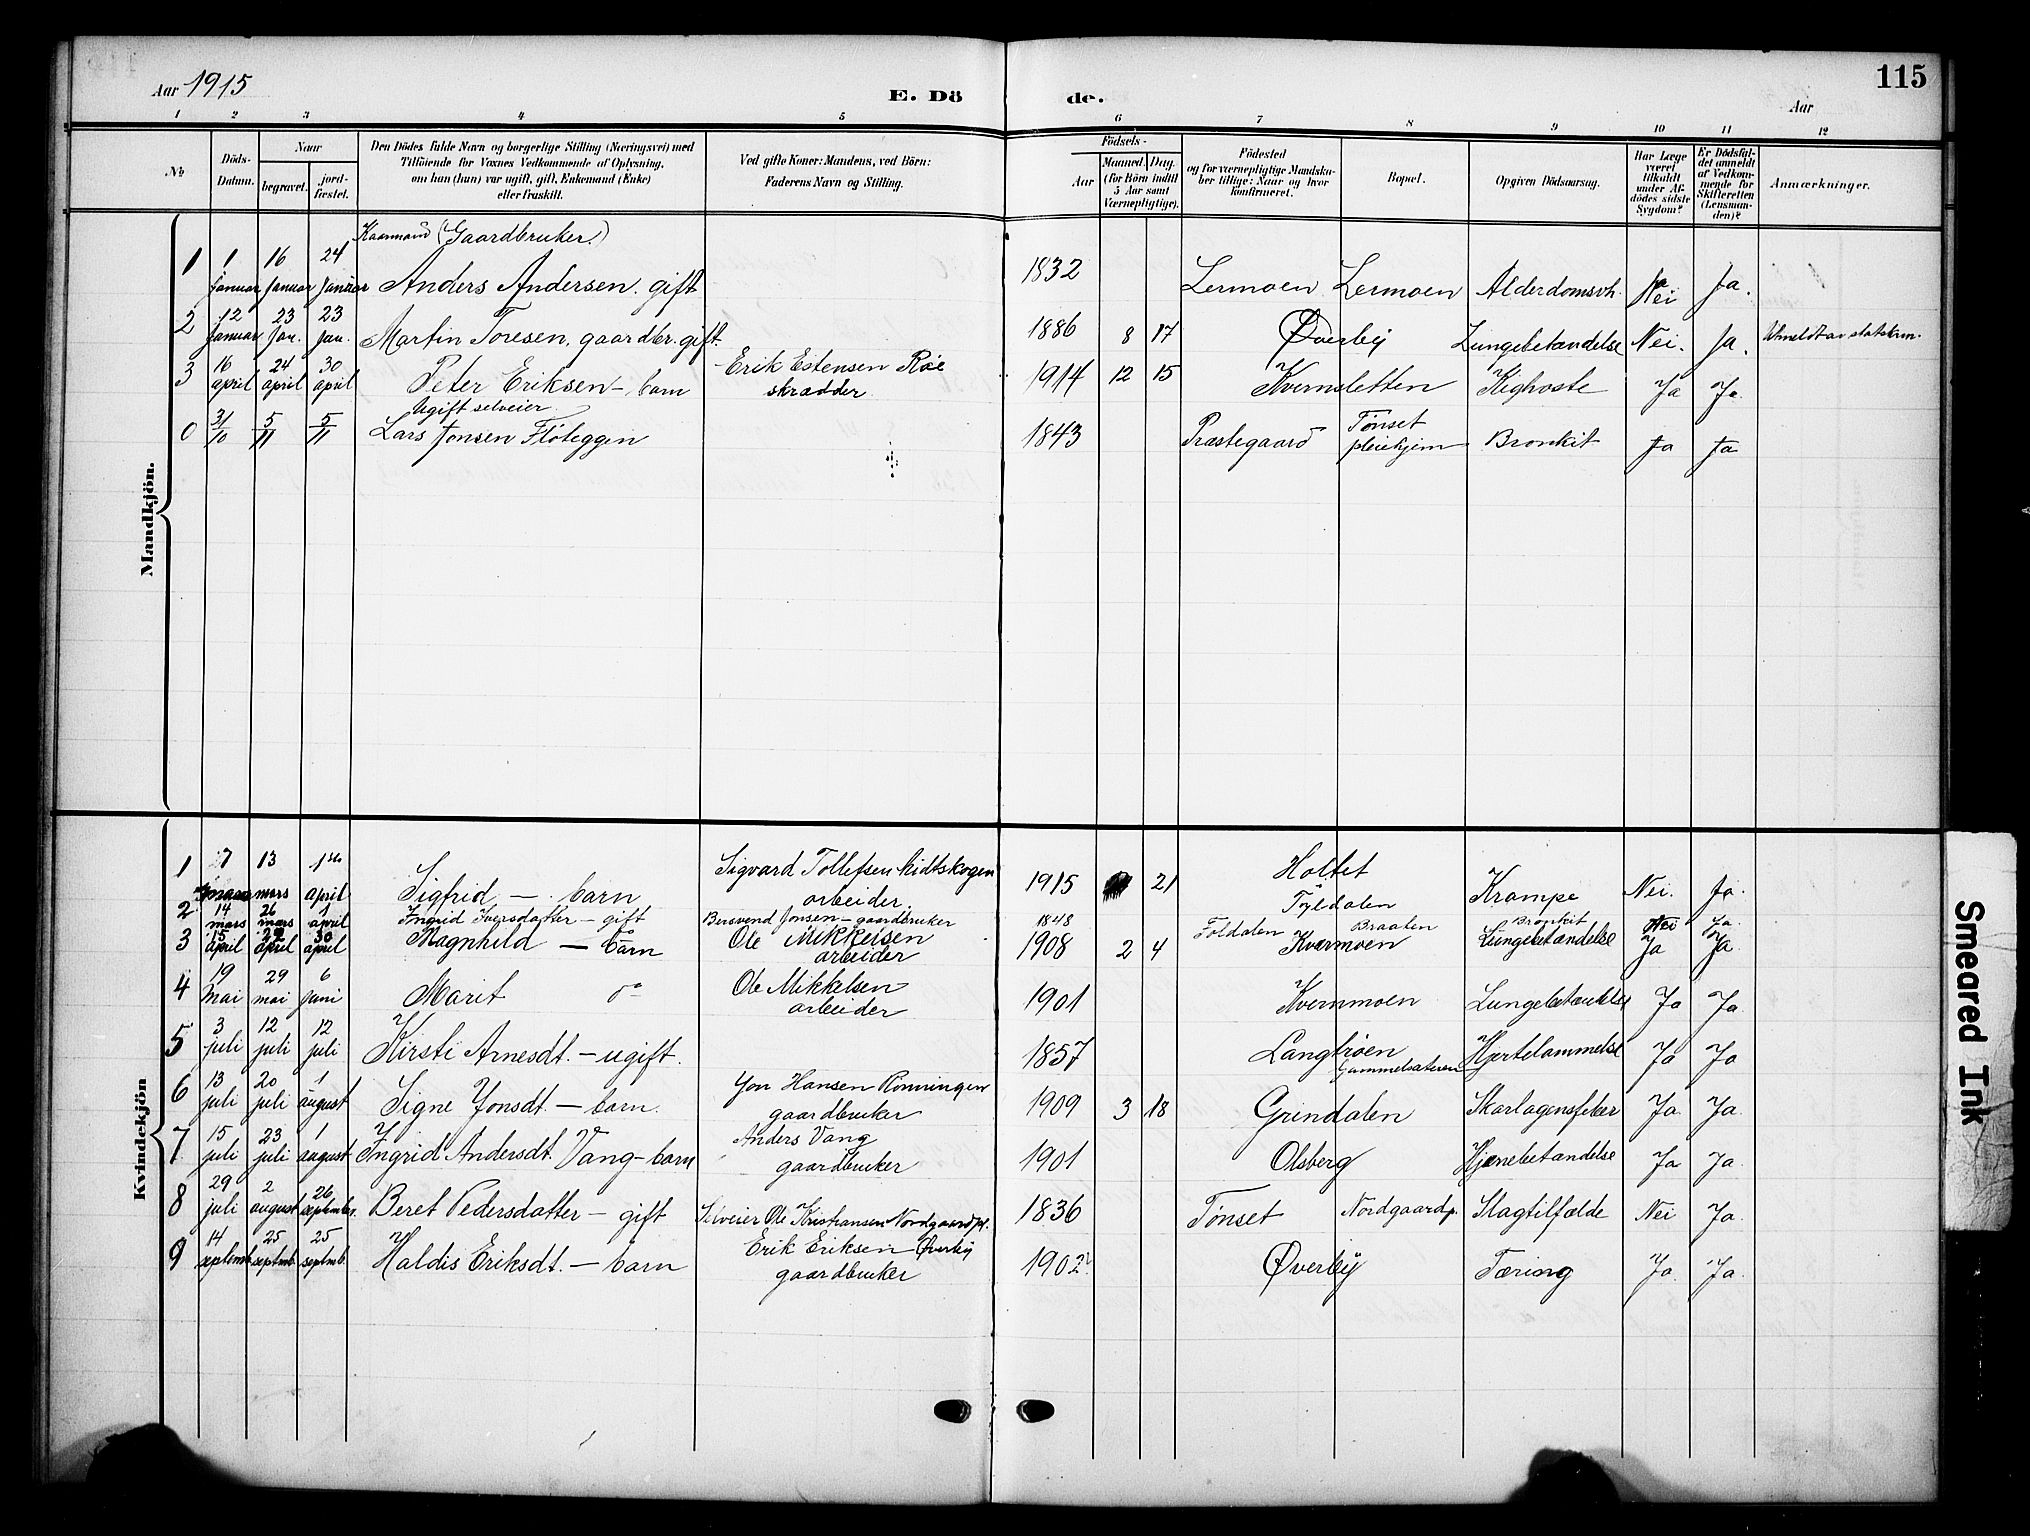 115
Aar 1915
E. Dö de.
Aar
1 2 3 4 5 6 7 8 9 10 11 12
No
Döds-Datum.
Naar
begravet.
jord-fæstet.
Den Dödes fulde Navn og borgerlige Stilling (Næringsvei) med
Tilföiende for Voxnes Vedkommende af Oplysning,
om han (hun) var ugift, gift, Enkemand (Enke)
eller fraskilt.
Ved gifte Koner: Mandens, ved Börn:
Faderens Navn og Stilling.
Födsels-
Aar
Maaned. Dag.
(for Börn indtil
5 Aar samt
Værnepligtige).
Födested
og for værnepligtige Mandska-
ber tillige: Naar og hvor
konfirmeret.
Bopæl.
Opgiven Dödsaarsag.
Har Læge
været
tilkaldt
under Af-
dödes sidste
Sygdom?
Er Dödsfal-
det anmeldt
af Vedkom-
mende for
Skifteretten
(Lensman-
den)?
Anmærkninger.
Mandkjön.
Kaarmand (Gaardbruker.)
1 1 januar 16 januar 24 januar Anders Andersen. gift 1832 Lermoen Lermoen Alderdomsvh. Nei Ja Ja.
2 12 januar 23 jan. 23 jan. Martin Toresen, gaardbr. gift. 1886 8 17 Øverby Lungebetændelse Nei. Ja.
3 16 april 24 april 30 april Peter Eriksen – barn Erik Estensen Røe skrædder 1914 12 15 Kvernsletten Kighoste Ja Ja.
Ugift selveier
0 31/10 5/11 5/11 Lars Jonsen Flöteggen 1843 Præstegaard Tønset pleiehjem Bronkit Ja Ja
Kvindekjön
1 7 mars 13 mars 1ste april Sigfrid – barn Sigvard Tollefsen Midtskogen arbeider. 1915 21 Holtet Tyldalen Krampe Nei. Ja.
2 14 mars 26 mars 1 april Ingrid Iversdatter – gift Bersvend Jonsen – gaardbruker 1848 Foldalen Braaten Bronkit Nei Ja
3 15 april 29 april 30 april Magnhild – barn Ole Mikkelsen arbeider 1908 2 4 Kvernmoen Lungebetændelse Ja Ja.
4 19 mai 29 mai 6 juni Marit do Ole Mikkelsen arbeider 1901 Kvernmoen Lungebetændelse Ja Ja.
5 3 juli 12 juli 12 juli Kirsti Arnesdt. – ugift. 1857 Langtrøen Gammelsæteren Hjertelammelse Ja Ja
6 13 juli 20 juli 1 august Signe Jonsdt – barn. Jon Hansen Rønningen gaardbruker 1909 3 18 Grindalen Skarlagensfeber Ja Ja.
7 15 juli 23 juli 1 august Ingrid Andersdt. Vang – barn Anders Vang gaardbruker 1901 Olsberg Hjernebetændelse Ja Ja.
8 29 juli 2 august 26 september. Beret Pedersdatter – gift Selveier Ole Kristiansen Nordgaardpl. 1836 Tønset Nordgaardp. Slagtilfælde Nei Ja.
9 14 septemb. 25 septmb. 25 septmb. Haldis Eriksdt. – barn Erik Eriksen Øverby gaardbruker 1902 Øverby Tæring Ja. Ja.
Smeared Ink